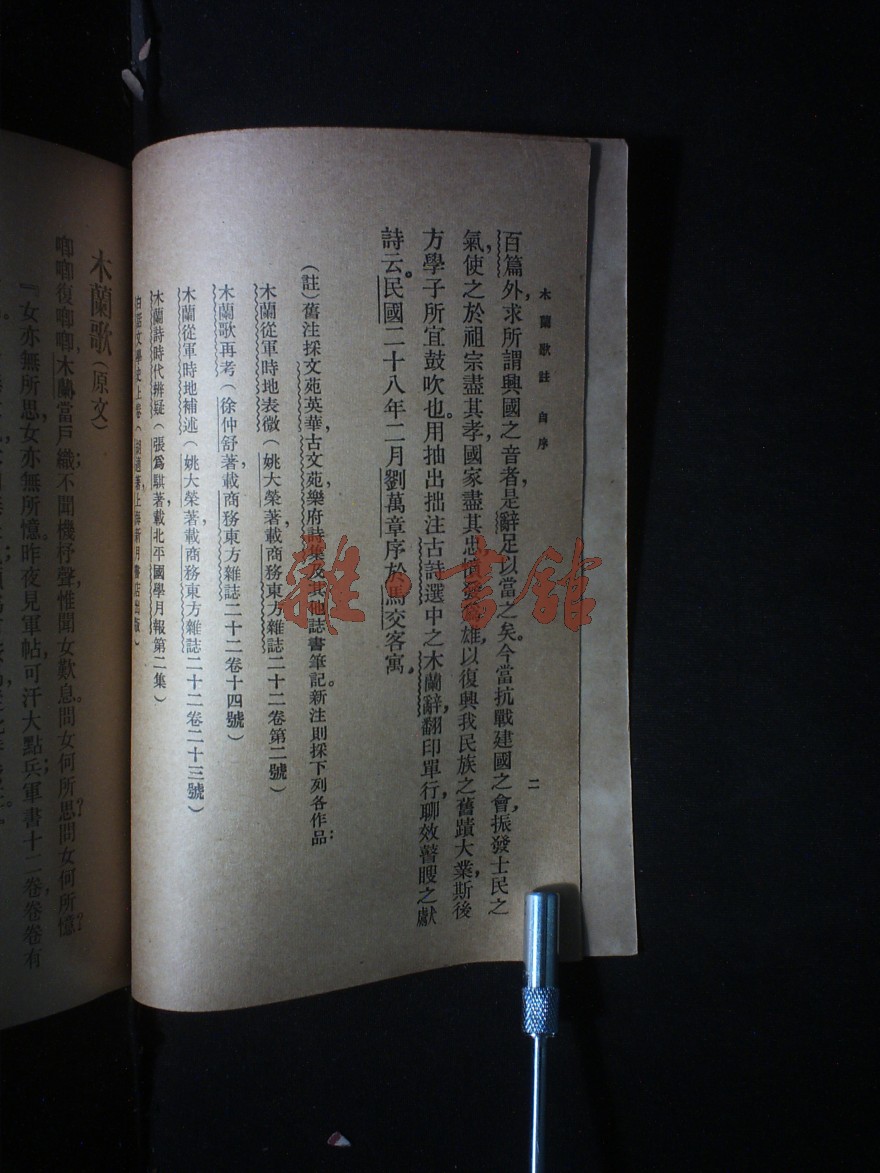 木蘭歌註 自序
二
百篇外,求所謂興國之音者,是辭足以當之矣。今當抗戰建國之會,振發士民之
氣,使之於祖宗盡其孝,國家盡其忠,雄,以復興我民族之舊蹟大業,斯後
方學子所宜鼓吹也。用抽出拙注古詩選中之木蘭辭,翻印單行,聊效瞽瞍之獻
詩云。民國二十八年二月劉萬章序於馬交客寓。
(註)舊注採文苑英華,古文苑,樂府詩集及其他誌書筆記。新注則採下列各作品:
木蘭從軍時地表微(姚大榮著,載商務東方雜誌二十二卷第二號)
木蘭歌再考(徐仲舒著,載商務東方雜誌二十二卷十四號)
木蘭從軍時地補述(姚大榮著,載商務東方雜誌二十二卷二十三號)
木蘭詩時代辨疑(張為騏著,載北平國學月報第二集)
白話文學史上卷(胡適著,上海新月書店出版)
木蘭歌(原文)
唧唧復唧唧,木蘭當戶織;不聞機杼聲,惟聞女歎息。問女何所思?問女何所憶?
『女亦無所思,女亦無所憶。昨夜見軍帖,可汗大點兵;軍書十二卷,卷卷有
雜·書館